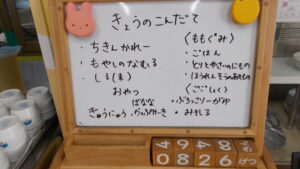 きょうのこんだて
・ちきんかれー
・もやしのなむる
・しる(ま)
おやつ
ばなな
ぎゅうにゅう
〈ももぐみ〉
・ごはん
・とりとやさいのにもの
・ほうれんそうのおひたし
〈ごごしょく〉
・ぶろっこりーがゆ
・みそしる
4 9 8 4
0 8 2 6 げつ